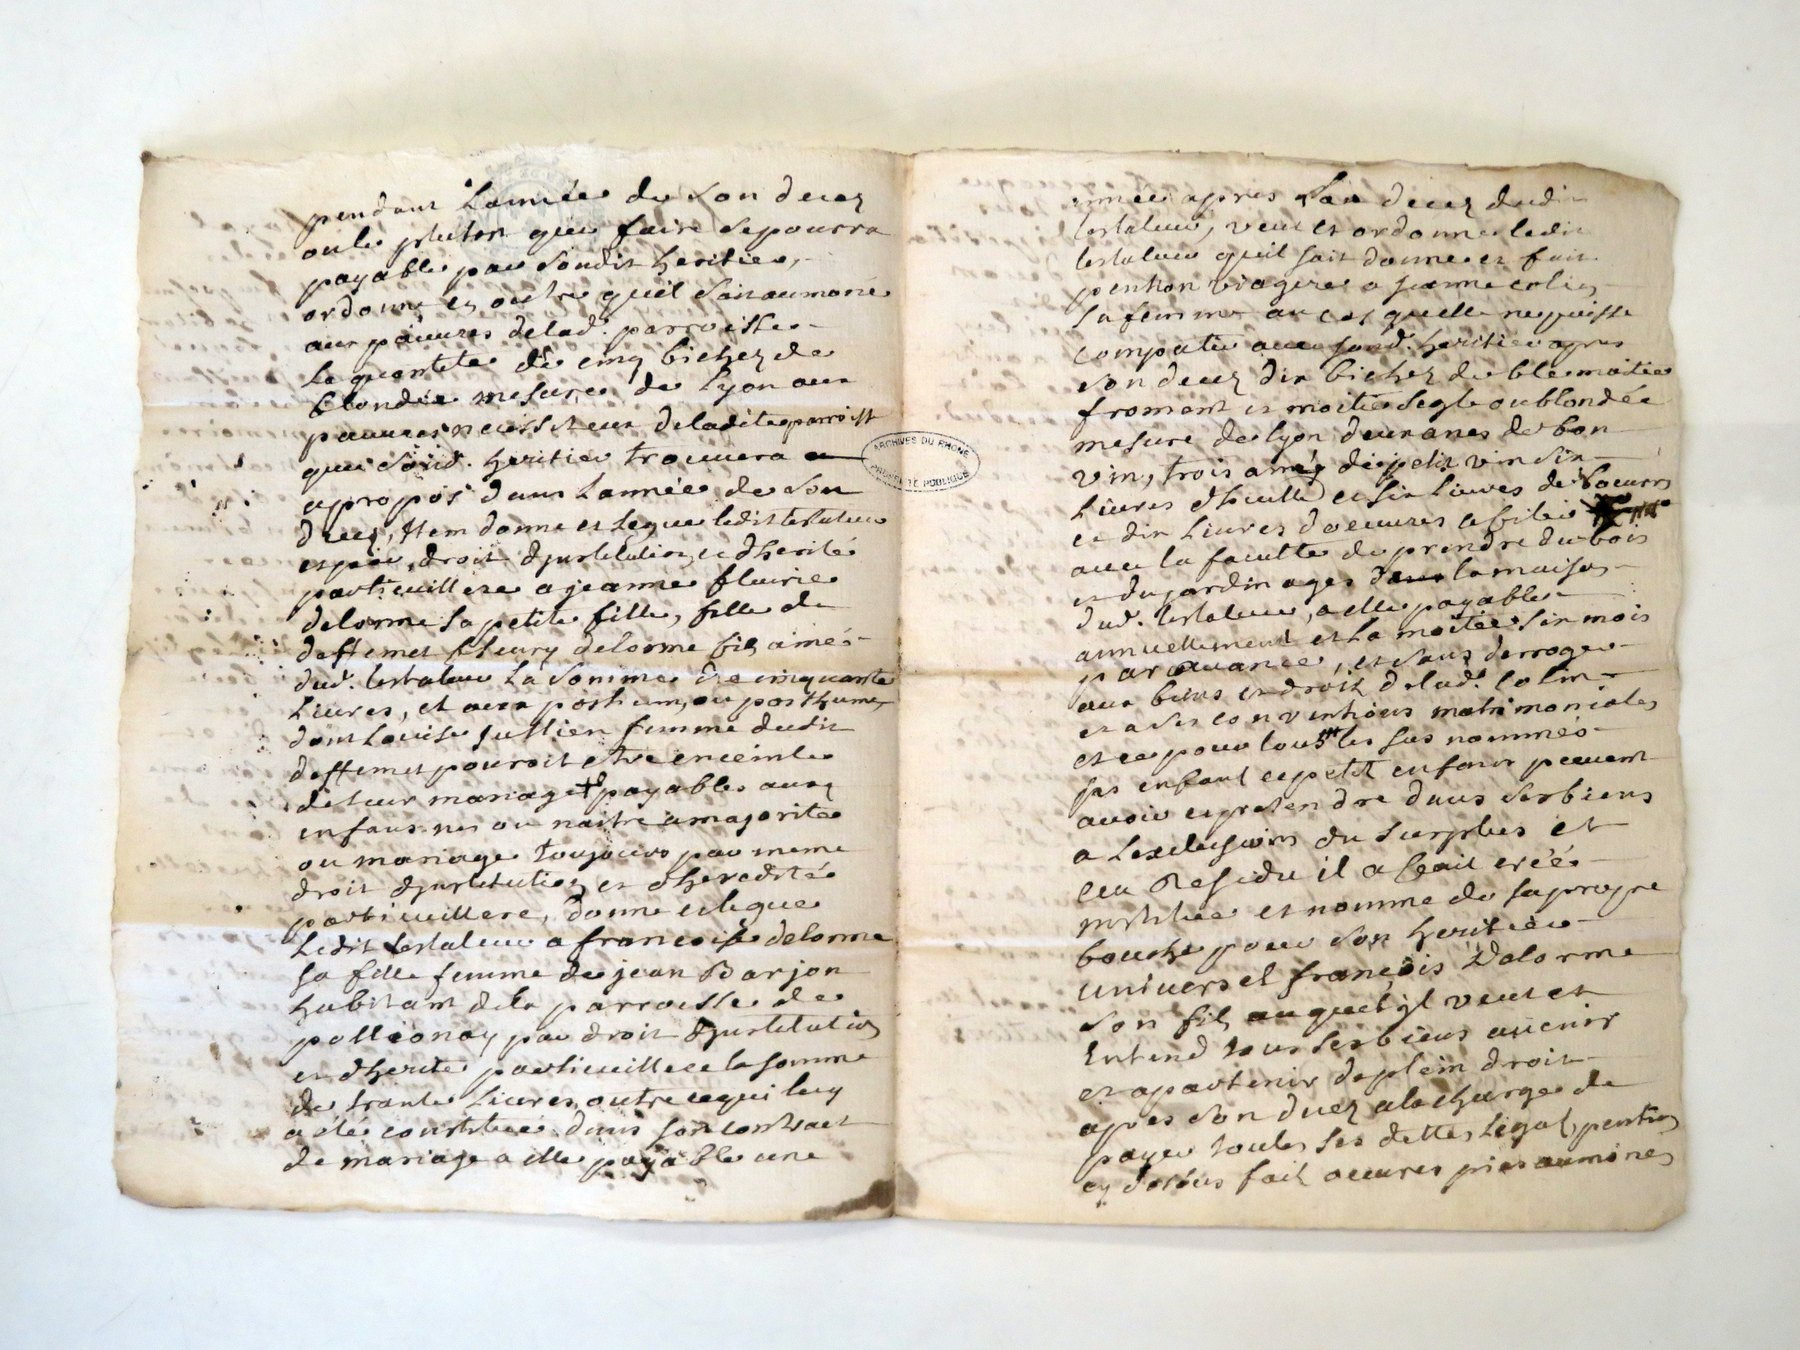 pendant Lannée de son decez
ou le plutost que faire se pourra
payable par sondit heritier,
ordonne en outre quil soit aumoné
aux pauures de lad. parroisse
la quantité de cinq bichez de
blondée mesure de Lyon aux
pauures necessiteux de ladite parroisse
que sond. heritier trouuera a
apropos dans Lannée de son
decez, Item donne et legue ledit testateur
et par droit djnstitution et dherité
particuillere a jeanne fleurie
delorme sa petite fille, fille de
deffunct fleury delorme fils ainé
dud. testateur La somme de cinquante
Liures, et aux posthum ou posthumes
dont Louise jullien femme dudit
deffunct pouroit etre enceinte
de leur mariage payables auxd
enfans nes ou naitre a majorité
ou mariage toujours par meme
droit djnstitution et dheredité
particuillere, donne et legue
Ledit testateur a francoise delorme
sa fille femme de jean Barjon
habitant de la parroisse de
pollionay par droit djnstitution
et dherité particuillere la somme
de trante Liures, outre ce qui luy
a eté constitué dans son contract
de mariage a elle payable une
année apres Son decez dudit
testateur, veut et ordonne ledit
testateur quil soit donné et fait
pention viagere a jeanne
sa femme au cas quelle ne puisse
compatir auec sond. heritier apres
son decez dix bichez de blé moitié
froment et moitié segle ou blondée
mesure de Lyon deux anés de bon
vin, trois anés de petit vin six
Liures dhuille et six Liures de beurre
et dix Liures doeuures a filer
auec la faculté de prendre du bois
et du jardinages dans la maison
dud. testateur, a elle payable
annuellement et La moitié six mois
par auance, et sans derroger
aux biens et droit de lad.
et a ses conventions matrimoniales
et ce pour tous les sus nommés
ses enfant et petit enfans peuuent
avoir et pretendre dans ses biens
a Lexclusion du surplus et
Residu il a creé
institué et nommé de sa propre
bouche pour son heritier
universel françois Delorme
son fils auquel jl veut et
entend tous ses biens auenir
et apartenir de plein droit
apres son decez a la charge de
payer toutes ses dettes, Legat, pention
cy dessus fait oeuures pies aumones
ARCHIVES DU RHONE
PROPRIETE PUBLIQUE